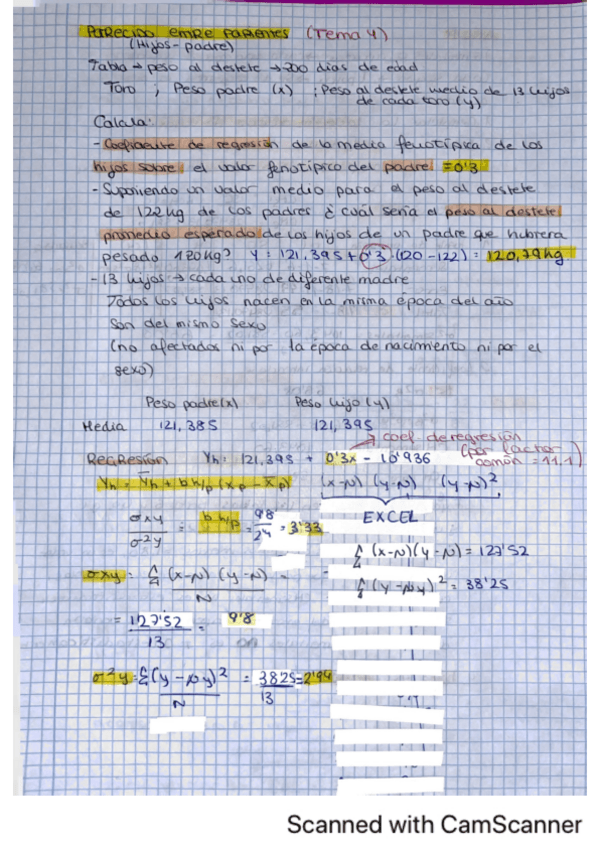 PARECIDO ENTRE PARIENTES (Tema 4)
(Hijos-padre)
Tabla → peso al destete → 200 días de edad
Toro ; Peso padre (x) ; Peso al destete medio de 13 hijos
de cada toro (y)
Calcula:
- Coeficiente de regresión de la media fenotípica de los
hijos sobre el valor fenotípico del padre = 0'3
- Suponiendo un valor medio para el peso al destete
de 122 kg de los padres ¿ cuál sería el peso al destete
promedio esperado de los hijos de un padre que hubiera
pesado 120 kg? Y = 121,395 + 0'3 · (120 - 122) = 120,79 kg
- 13 hijos → cada uno de diferente madre
Todos los hijos nacen en la misma época del año
Son del mismo sexo
(no afectados ni por la época de nacimiento ni por el
sexo)
Peso padre (x) Peso hijo (y)
Media 121,385 121,395
→ coef. de regresión
REGRESIÓN Yh = 121,395 + 0'3x - 10'936 (por factor
común = 11.1)
Yh = Yh + b h/p (xp - xp) (x-μ) (y-μ) (y-μ)²
σxy / σ²y = b h/p = 98 / 24 = 3'33 EXCEL
Σ (x-μ)(y-μ) = 127'52
σxy = Σ (x-μ) (y-μ) / N = Σ (y-μy)² = 38'25
= 127'52 / 13 = 9'8
σ²y = Σ (y-μy)² / N = 3825 / 13 = 2'94
Scanned with CamScanner